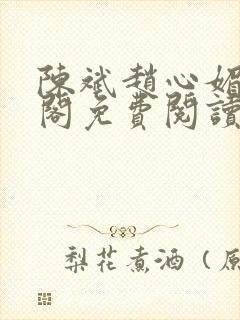 陳斌趙心媚
閣免費閱讀
梨花煮酒（原